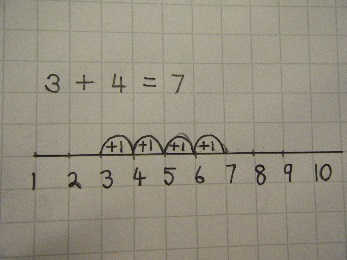 3 + 4 = 7
+1 +1 +1 +1
1 2 3 4 5 6 7 8 9 10